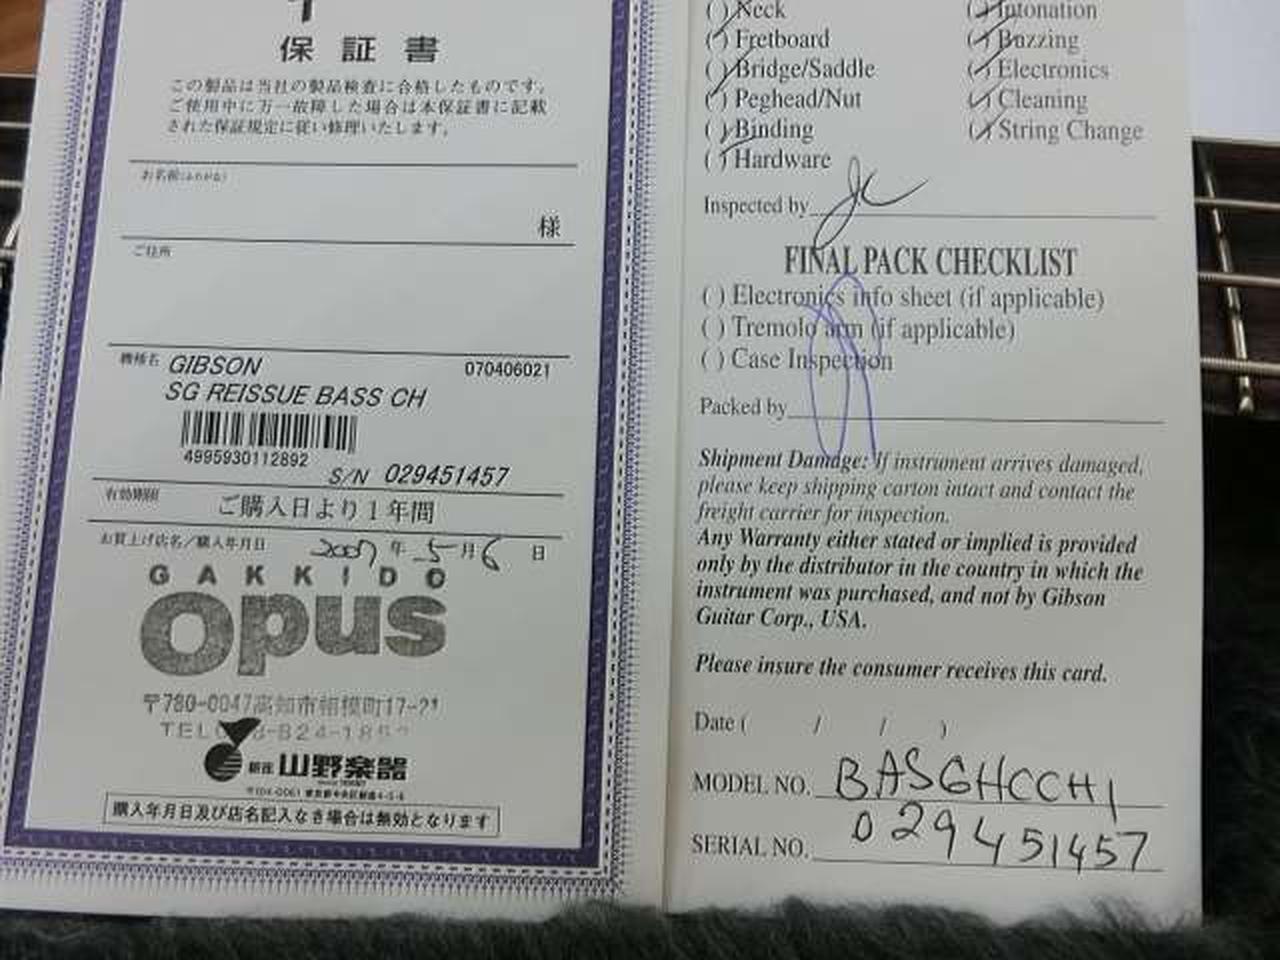 保証書
この製品は当社の製品検査に合格したものです。
ご使用中に万一故障した場合は本保証書に記載
された保証規定に従い修理いたします。
お名前(ふりがな)
様
ご住所
機種名 GIBSON 070406021
SG REISSUE BASS CH
4995930112892
S/N 029451457
有効期限 ご購入日より1年間
お買上げ店名/購入年月日 2007年5月6日
GAKKIDO
opus
〒780-0047高知市相模町17-21
TEL
山野楽器
購入年月日及び店名記入なき場合は無効となります
( ) Neck
( ) Fretboard
( ) Bridge/Saddle
( ) Peghead/Nut
( ) Binding
( ) Hardware
( ) Intonation
( ) Buzzing
( ) Electronics
( ) Cleaning
( ) String Change
Inspected by
FINAL PACK CHECKLIST
( ) Electronics info sheet (if applicable)
( ) Tremolo arm (if applicable)
( ) Case Inspection
Packed by
Shipment Damage: If instrument arrives damaged,
please keep shipping carton intact and contact the
freight carrier for inspection.
Any Warranty either stated or implied is provided
only by the distributor in the country in which the
instrument was purchased, and not by Gibson
Guitar Corp., USA.
Please insure the consumer receives this card.
Date ( / / )
MODEL NO. BASGHCCH1
SERIAL NO. 029451457